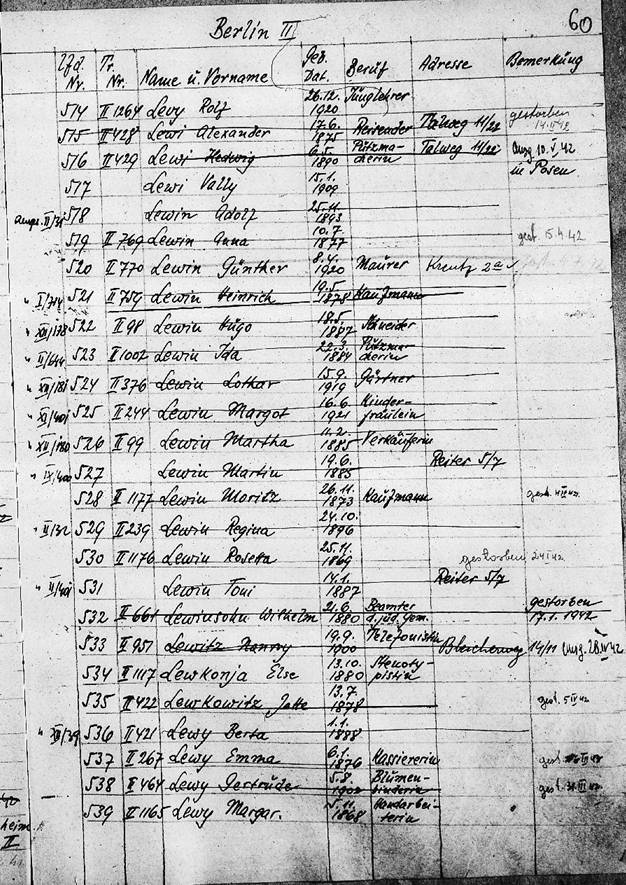 60
Berlin III
Lfd. Nr. Tr. Nr. Name u. Vorname Geb. Dat. Beruf Adresse Bemerkung
514 II 1264 Levy Rolf 26.12. 1920 Junglehrer
515 II 428 Lewi Alexander 17.6. 1875 Reisender Talweg 11/22 gestorben
516 II 429 Lewi Hedwig 6.5. 1890 Putzmacherin Talweg 11/22 Ausg. 10.V.42 in Posen
517 Lewi Vally 15.1. 1909
518 Lewin Adolf 25.11. 1893
519 II 769 Lewin Anna 10.7. 1877 gest. 15.4.42
520 II 770 Lewin Günther 8.4. 1920 Maurer 2a
I/714 521 II 759 Lewin Heinrich 19.5. 1878 Kaufmann
522 II 98 Lewin Hugo 18.5. 1887 Schneider
II/644 523 II 1002 Lewin Ida 22.3. 1884 Putzmacherin
524 II 376 Lewin Lothar 15.9. 1919 Gärtner
525 II 244 Lewin Margot 16.6. 1921 Kinderfräulein
526 II 99 Lewin Martha 11.2. 1885 Verkäuferin
527 Lewin Martin 19.6. 1885 Reiter 5/7
528 II 1177 Lewin Moritz 26.11. 1873 Kaufmann gest.
529 II 239 Lewin Regina 24.10. 1896
530 II 1176 Lewin Rosetta 25.11. 1869 gestorben
531 Lewin Toni 14.1. 1887 Reiter 5/7
532 II 661 Lewinsohn Wilhelm 21.6. 1880 Beamter d. jüd. Gem. gestorben 17.1.1942
533 II 951 Lewitz Nanny 19.9. 1900 Telefonistin 14/11
534 II 1117 Lewkonja Else 13.10. 1880 Stenotypistin
535 II 422 Lewkowitz Jette 13.7. 1878 gest.
536 II 421 Lewy Berta 1.1. 1888
537 II 267 Lewy Emma 6.1. 1876 Kassiererin gest.
538 II 464 Lewy Gertrude 5.8. 1902 Blumenbinderin gest.
539 II 1165 Lewy Margar. 5.11. 1868 Handarbeiterin
heim
II